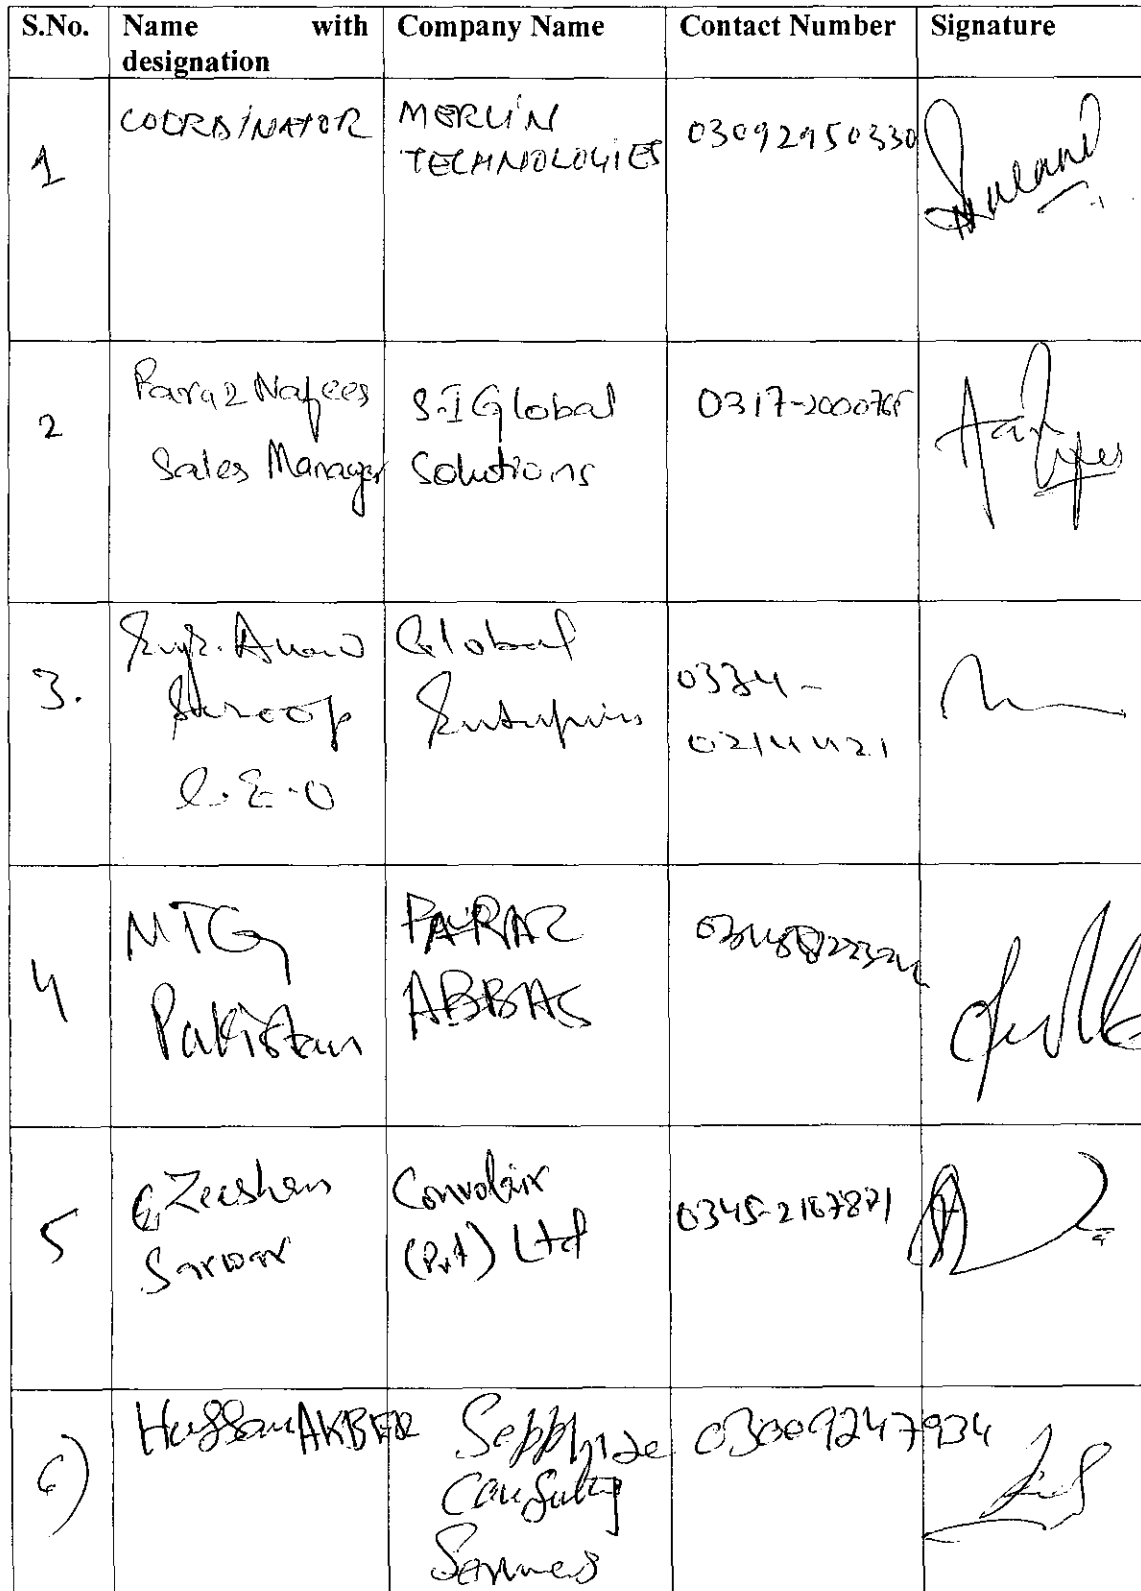 S.No. Name with designation Company Name Contact Number Signature
1 COORDINATOR MERLIN TECHNOLOGIES 03092950330
2 Faraz Nafees Sales Manager S.I Global Solutions 0317-2000765
3. Engr. Swroop C.E.O Global Enterprises 0334-0214421
4 MTG Pakistan FARAZ ABBAS
5 Zeeshan Sarwar (Pvt) Ltd 0345-2167871
6) AKBER Sapphire Consulting Services 03009247934